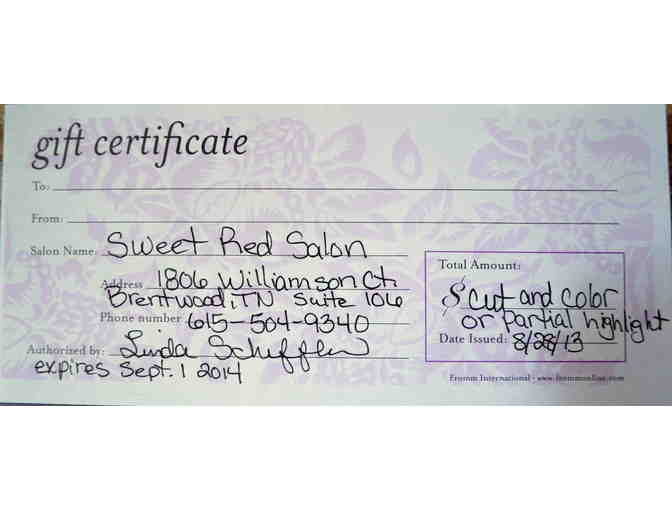 gift certificate
To:
From:
Salon Name: Sweet Red Salon
Address 1806 Williamson Ct
Brentwood, TN Suite 106
Phone number 615-504-9340
Authorized by: Linda
expires Sept. 1 2014
Total Amount:
$ cut and color
or partial highlight
Date Issued: 8/28/13
Fromm International · www.frommonline.com